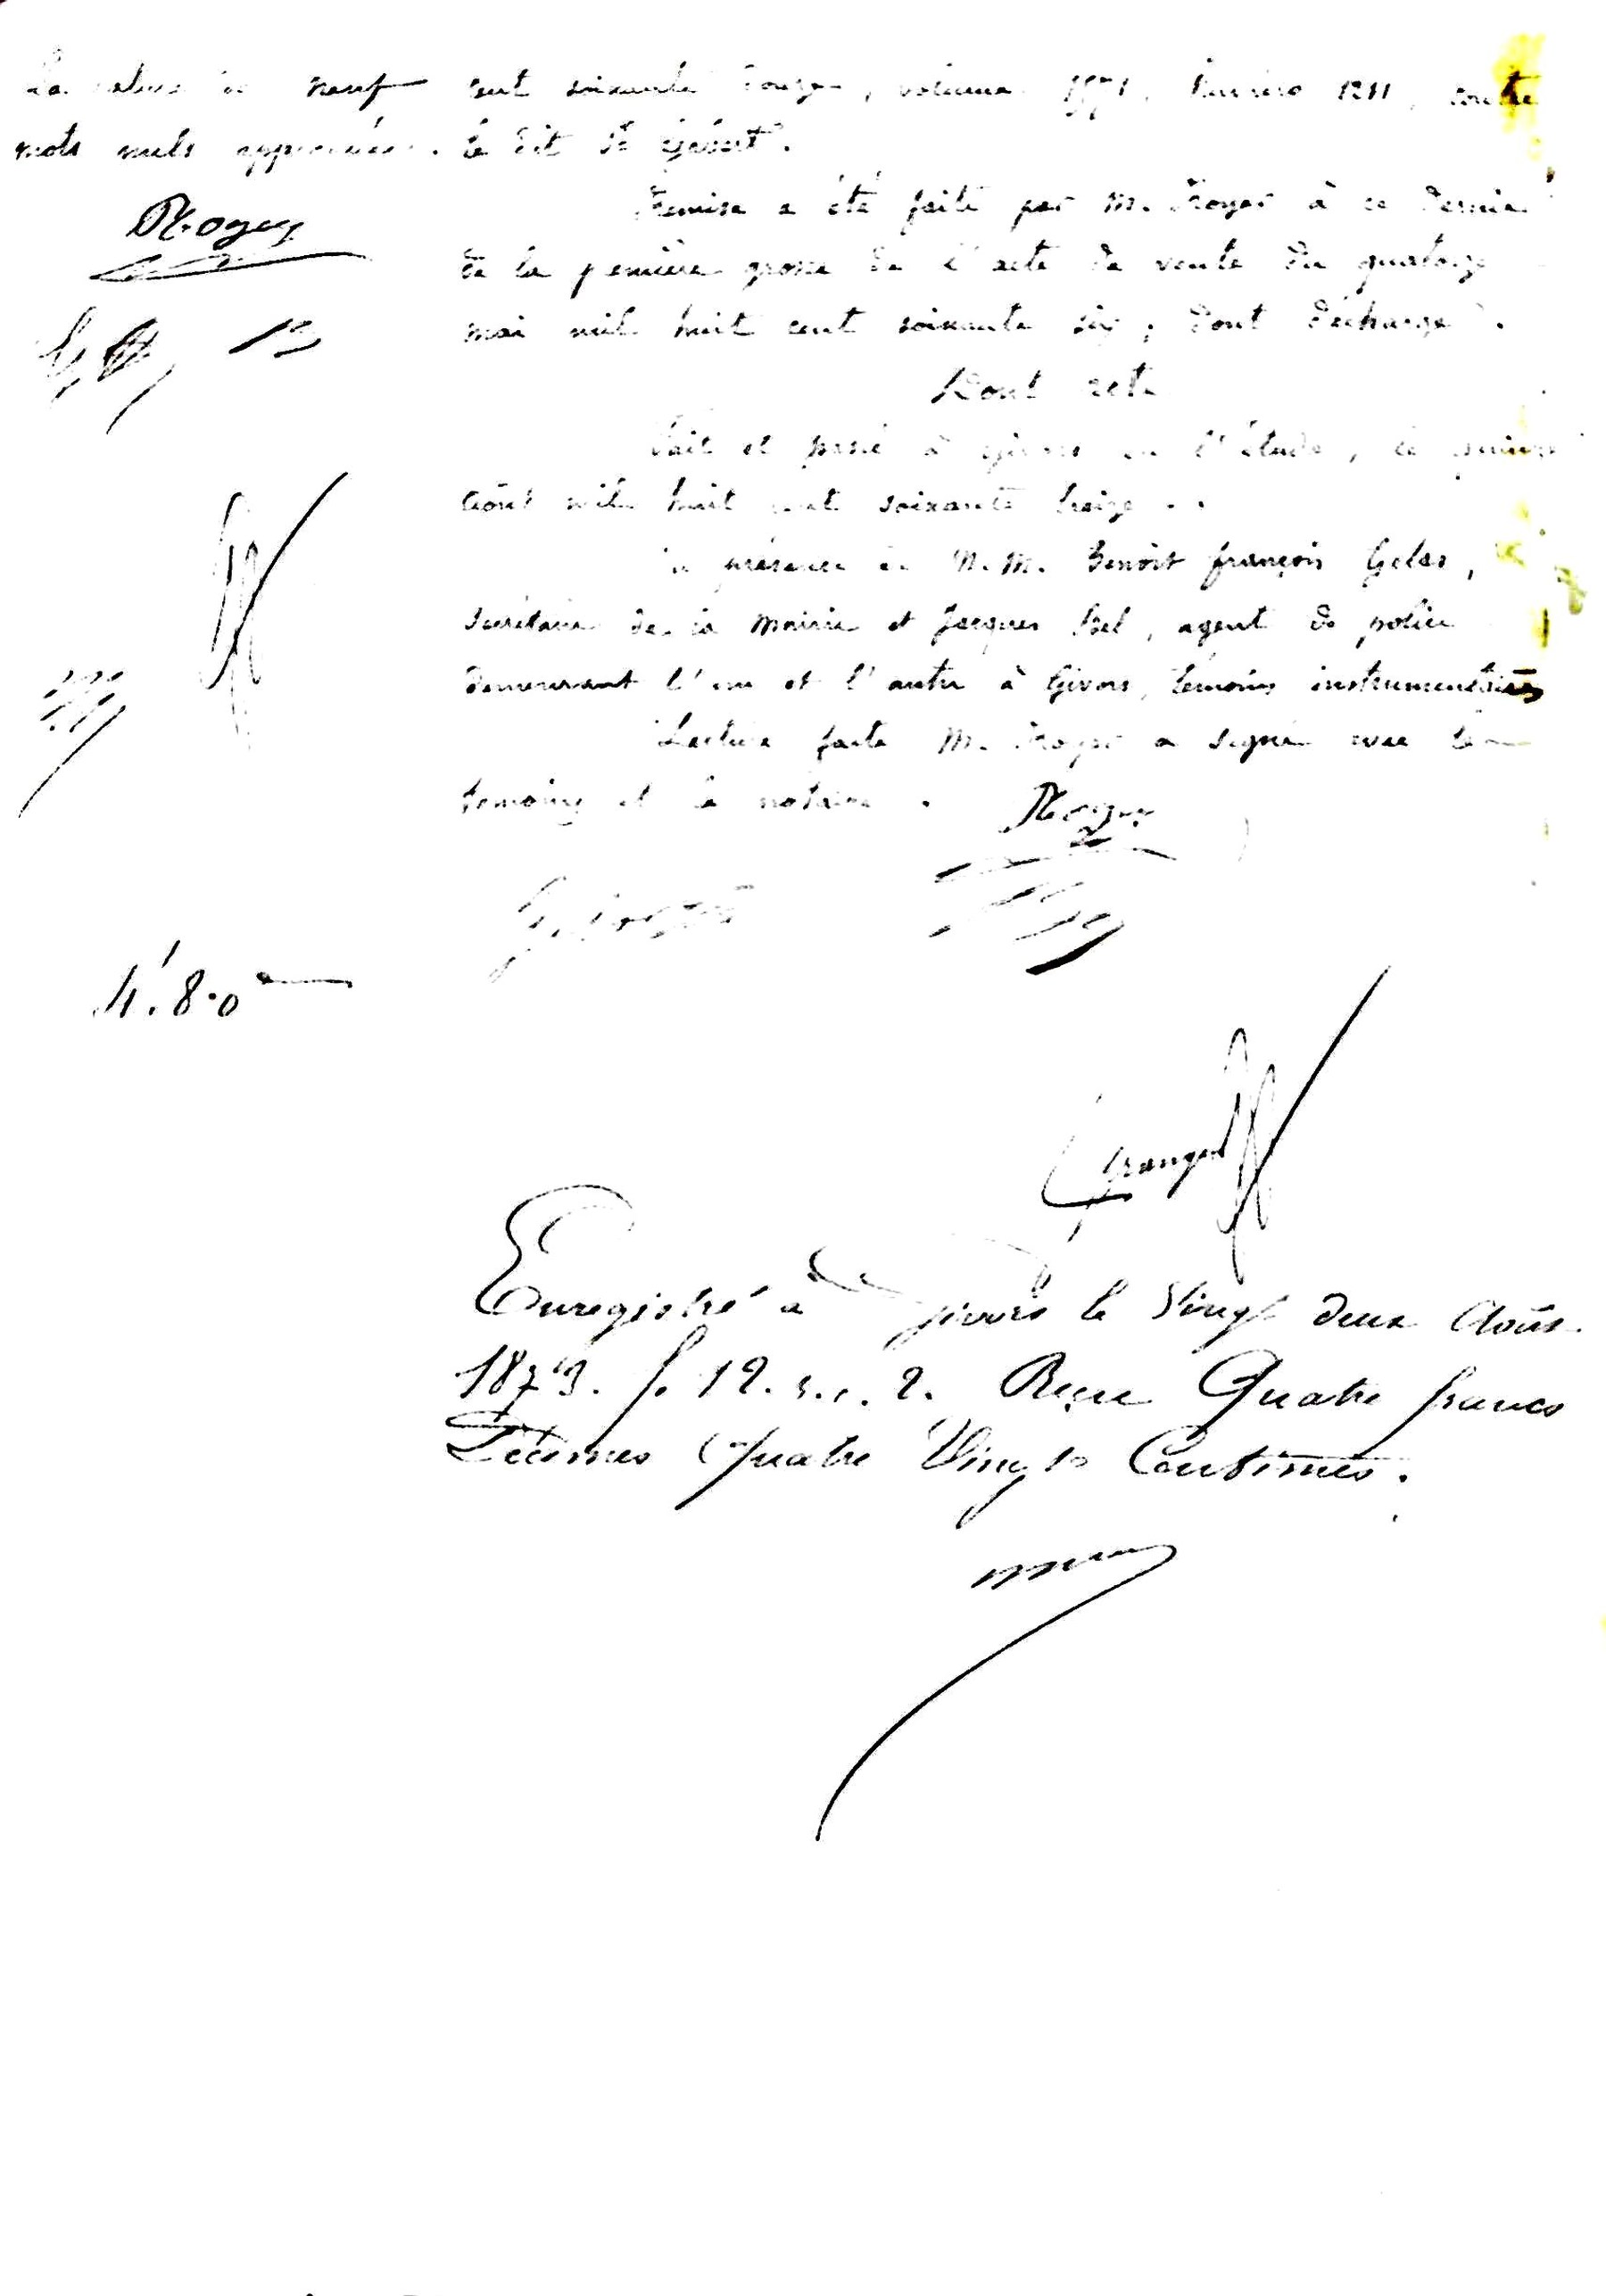 La rature de neuf
mots nuls approuvée.
Royer
cent soixante douze, volume numéro 1211, contre
le dit Sr
Remise a été faite par M. Royer à ce dernier
de la première grosse de l'acte de vente du quatorze
mai mil huit cent soixante six ; dont décharge.
Dont acte
Fait et passé à Givors en l'étude, le
août mil huit cent soixante treize.
En présence de M.M. Benoît françois Gelas,
secrétaire de la Mairie et Jacques agent de police
demeurant l'un et l'autre à Givors, témoins instrumentaires
Lecture faite M. Royer a signé avec les
témoins et le notaire.
Royer
4f.80
Granger
Enregistré à Givors le Vingt deux Août
1873. f. 12. 2. Reçu Quatre francs
Décimes Quatre Vingts Centimes.